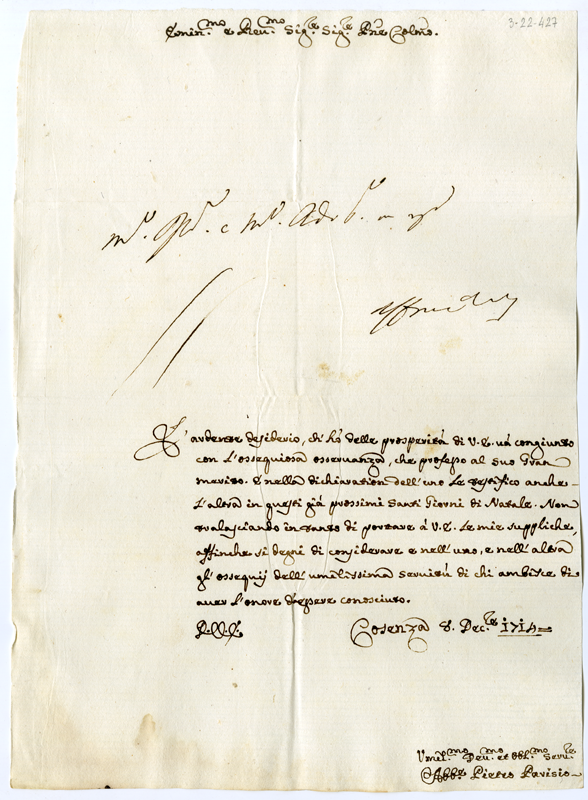 3-22-427
Emin.mo e Reu.mo Sig.re Sig.re Pne Colmo.
L'ardente desiderio, ch'hò delle prosperità di V. E. uà congiunto
con l'ossequiosa osseruanza, che professo al suo Gran
merito. E nella dichiaration dell'uno le testifico anche
l'altra in questi già prossimi Santi Giorni di Natale. Non
tralasciando in tanto di portare à V. E. le mie suppliche,
affinche si degni di considerare e nell'uno, e nell'altra
gl'ossequij dell'umilissima seruitù di chi ambisce di
auer l'onore d'essere conosciuto.
Cosenza 8. Dec.re 1714
Vmil.mo Deu.mo et Obl.mo Seru.re
Abb.e Pietro Parisio